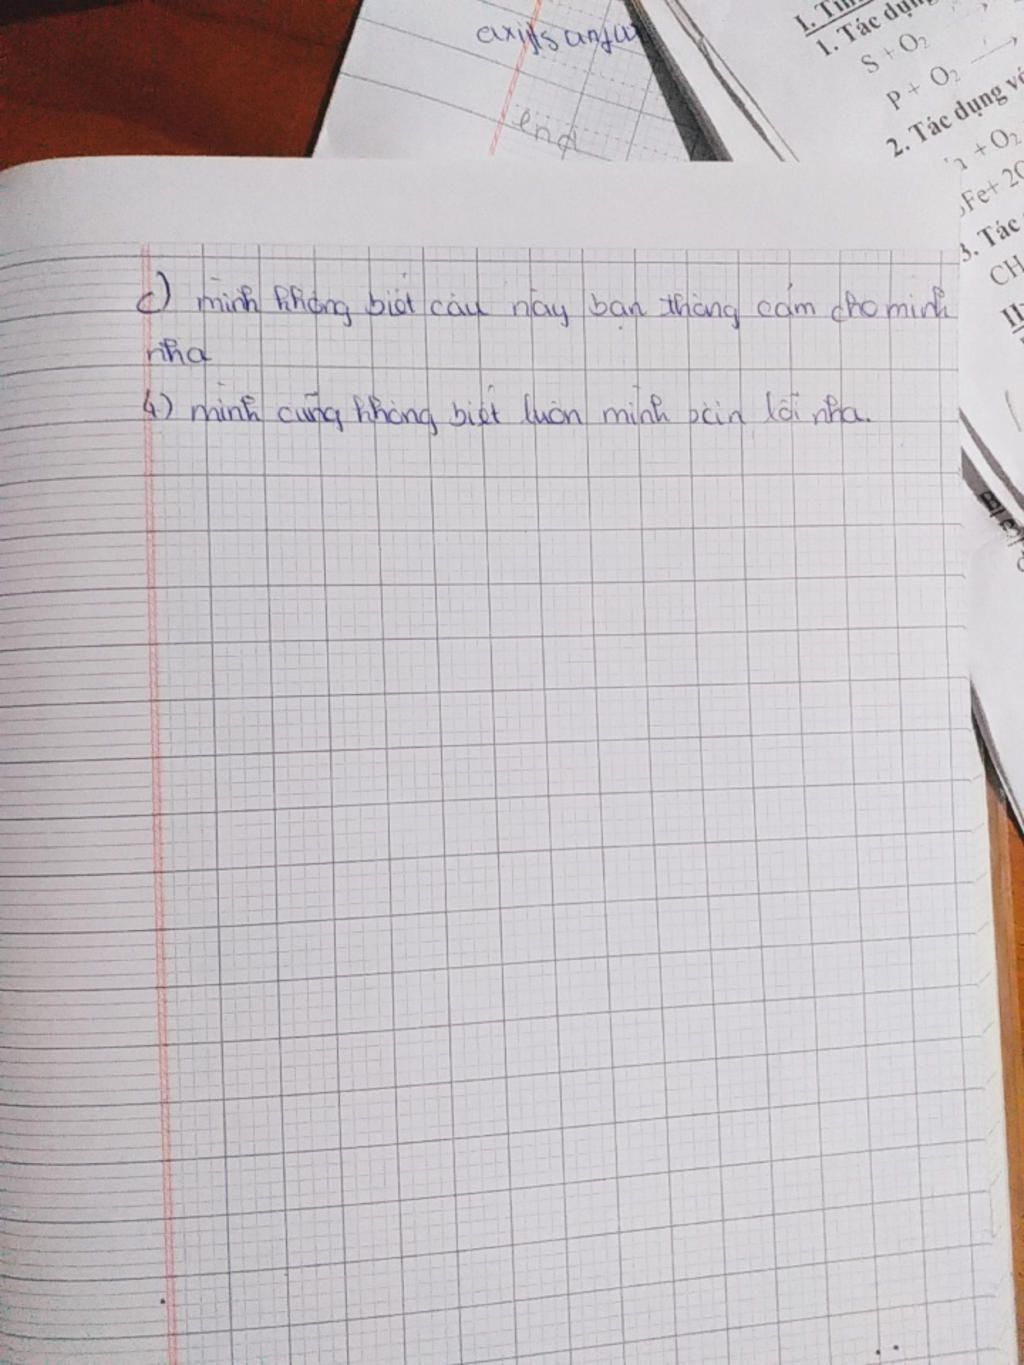 axit sunfu
end
I. Tín
1. Tác dụng
S + O₂
P + O₂ →
2. Tác dụng vớ
+ O₂
Fe+ 2O
3. Tác
CH
II
c) mình không biết câu này bạn thông cảm cho mình
nha
4) mình cũng không biết luôn mình xin lỗi nha.